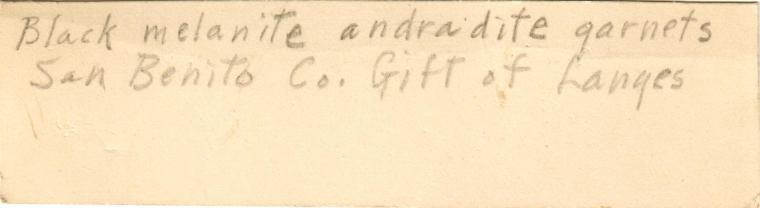 Black melanite andradite garnets
San Benito Co. Gift of Langes